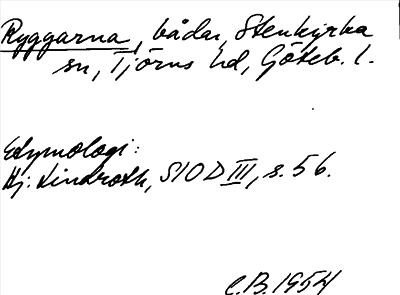 Ryggarna, bådar, Stenkyrka
sn, Tjörns hd, Göteb. l.
Etymologi:
Hj. Lindroth, SIOD III, s. 56.
C.B. 1954